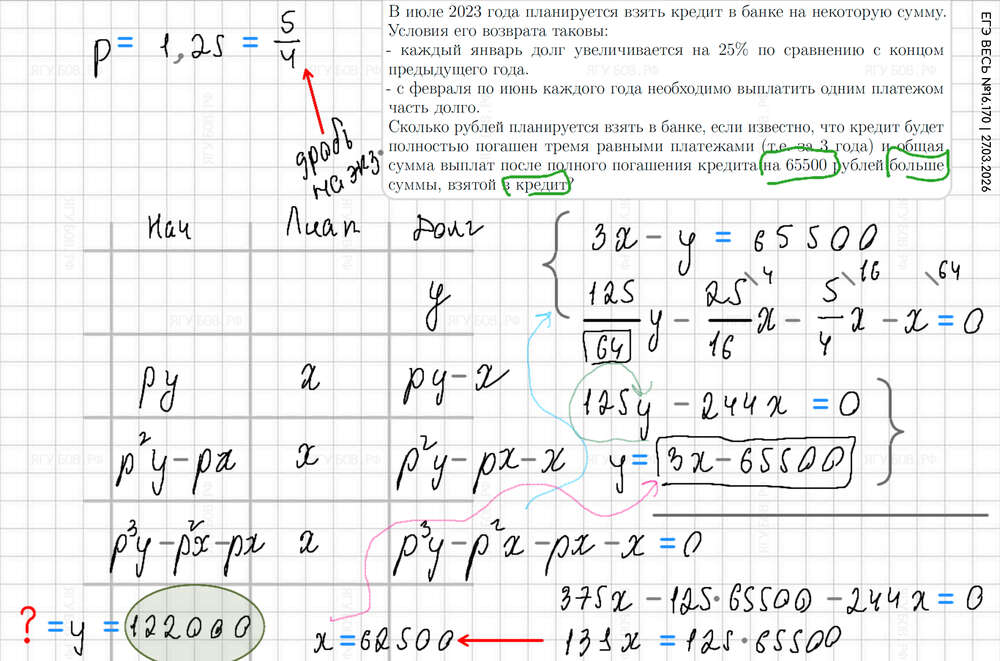 p = 1,25 = 5/4
дробь
на экз.
В июле 2023 года планируется взять кредит в банке на некоторую сумму.
Условия его возврата таковы:
- каждый январь долг увеличивается на 25% по сравнению с концом
предыдущего года.
- с февраля по июнь каждого года необходимо выплатить одним платежом
часть долго.
Сколько рублей планируется взять в банке, если известно, что кредит будет
полностью погашен тремя равными платежами (т.е. за 3 года) и общая
сумма выплат после полного погашения кредита на 65500 рублей больше
суммы, взятой в кредит?
ЕГЭ ВЕСЬ №16.170 | 27.03.2026
Нач Плат Долг
y
py x py-x
p²y-px x p²y-px-x
p³y-p²x-px x p³y-p²x-px-x=0
3x-y=65500
125/64 y - 25/16 x - 5/4 x - x = 0
4 16 64
125y-244x=0
y=3x-65500
375x-125·65500-244x=0
131x=125·65500
x=62500
?=y=122000
ЯГУБОВ.РФ